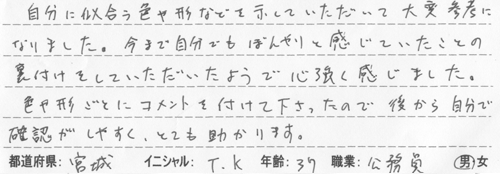 自分に似合う色や形などを示していただいて大変参考に
なりました。今まで自分でもぼんやりと感じていたことの
裏付けをしていただいたようで心強く感じました。
色や形ごとにコメントを付けて下さったので後から自分で
確認がしやすく、とても助かります。
都道府県: 宮城 イニシャル: T.K 年齢: 37 職業: 公務員 男女